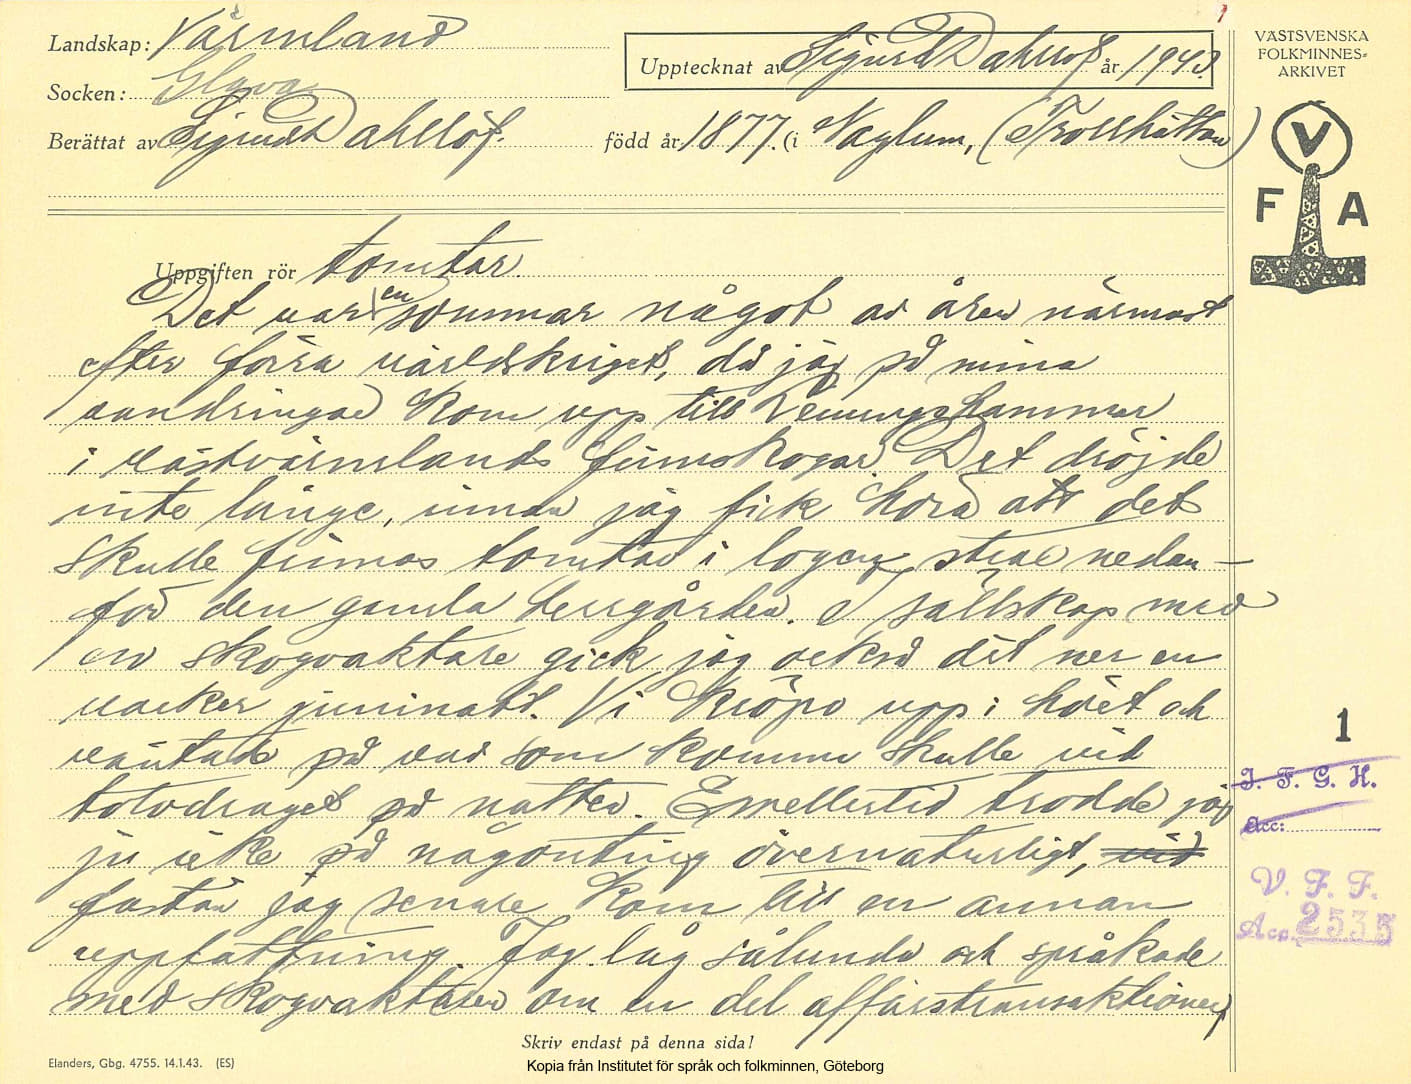 Landskap: Värmland
Socken: Glava
Upptecknat av Sigurd Dahllöf år 1943.
Berättat av Sigurd Dahllöf. född år 1877. (i Naglum, (Trollhättan)
VÄSTSVENSKA
FOLKMINNES-
ARKIVET
V
F A
Uppgiften rör tomtar.
Det var en sommar något av åren närmast
efter förra världskriget, då jag på mina
vandringar kom upp till Lenungshammar
i västvärmlands finnskogar. Det dröjde
inte länge, innan jag fick höra att det
skulle finnas tomtar i logen strax nedan-
för den gamla herrgården. I sällskap med
en skogvaktare gick jag också dit ner en
vacker juninatt. Vi kröpo upp i höet och
väntade på vad som komma skulle vid
tolvdraget på natten. Emellertid trodde jag
ju icke på någonting övernaturligt, vid
fastän jag senare kom till en annan
uppfattning. Jag låg sålunda och språkade
med skogvaktaren om en del affärstransaktioner,
1
I. F. G. H.
Acc:
V. F. F.
Acc. 2535
Skriv endast på denna sida!
Elanders, Gbg. 4755. 14.1.43. (ES)
Kopia från Institutet för språk och folkminnen, Göteborg